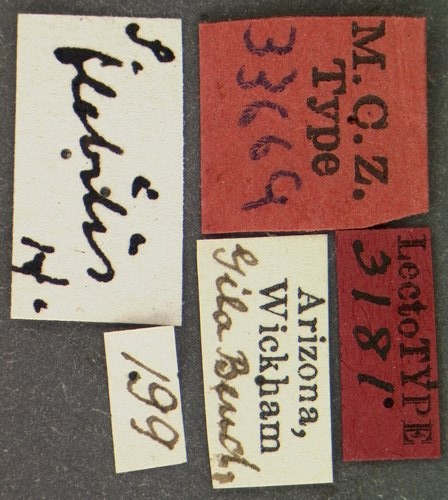 S.
flebilis
Ty.
M.C.Z.
Type
33669
Arizona,
Wickham
Gila Bend,
LectoTYPE
3181.
199